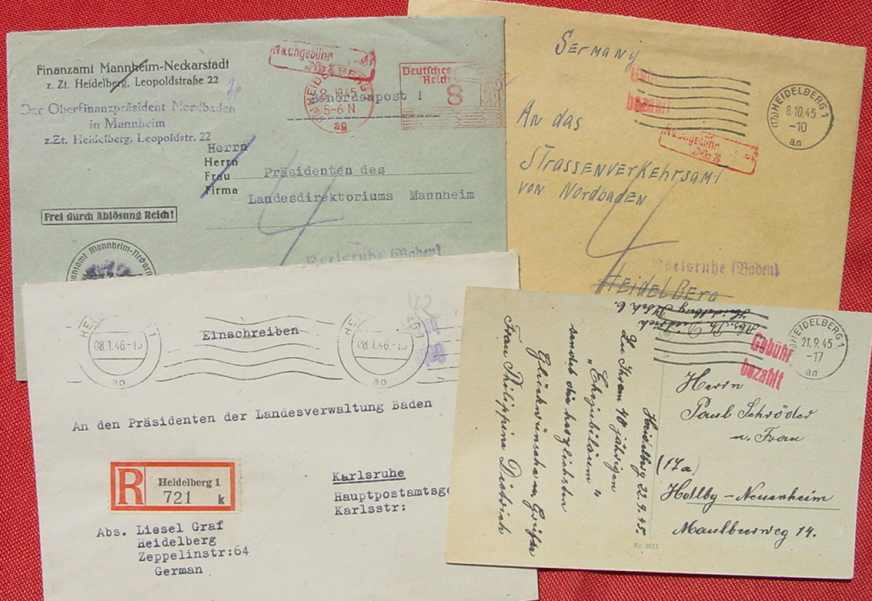 Finanzamt Mannheim-Neckarstadt
z. Zt. Heidelberg, Leopoldstraße 22
Der Oberfinanzpräsident Nordbaden
in Mannheim
z.Zt. Heidelberg, Leopoldstr. 22
Nachgebühr
HEIDELBERG
10.45
5-6 N
ag
Deutsches
Reich
8
Herrn
Herrn
Frau
Firma
Präsidenten des
Landesdirektoriums Mannheim
Frei durch Ablösung Reich!
Karlsruhe (Baden)
Germany
bezahlt
Nachgebühr
HEIDELBERG 1
8.10.45
-10
an
An das
Strassenverkehrsamt
von Nordbaden
Karlsruhe (Baden)
Heidelberg
08.1.46-15
ao
Einschreiben
8.1.46-15
ao
An den Präsidenten der Landesverwaltung Baden
R
Heidelberg 1
721 k
Karlsruhe
Hauptpostamtsge
Karlsstr:
Abs. Liesel Graf
Heidelberg
Zeppelinstr:64
German
Heidelberg 22.9.45.
Zu Ihrem 40 jährigen
"Ehejubiläum"
sendet die herzlichsten
Glückwünsche u. Grüße
Frau Philippine Dietrich
Gebühr
bezahlt
HEIDELBERG 1
21.9.45
-17
an
Herrn
Paul Schröder
u. Frau
(17a)
Hdlbg-Neuenheim
Maulbeerweg 14.